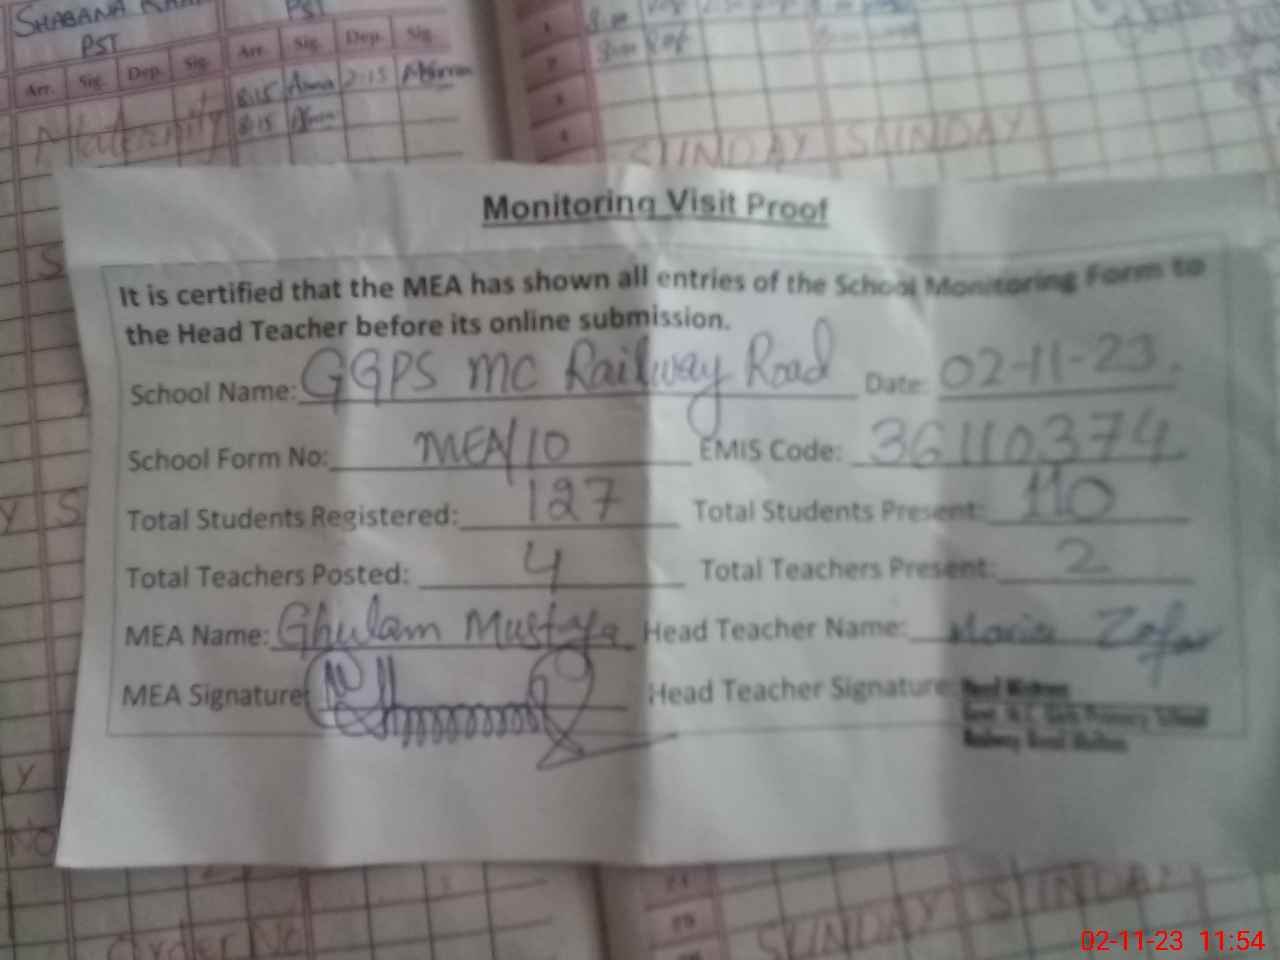 SHABANA
PST
PST
Arr. Sig. Dep. Sig. Arr. Sig. Dep. Sig.
8:15 2:15
8:15
Maternity
SUNDAY SUNDAY
Monitoring Visit Proof
It is certified that the MEA has shown all entries of the School Monitoring Form to
the Head Teacher before its online submission.
School Name: GGPS MC Railway Road Date: 02-11-23.
School Form No: MEA/10 EMIS Code: 36110374
Total Students Registered: 127 Total Students Present: 110
Total Teachers Posted: 4 Total Teachers Present: 2
MEA Name: Ghulam Mustafa Head Teacher Name: Maria Zafar
MEA Signature: Head Teacher Signature:
Head Mistress
Govt. M.C. Girls Primary School
Railway Road Multan
Order No
SUNDAY SUNDAY
02-11-23 11:54